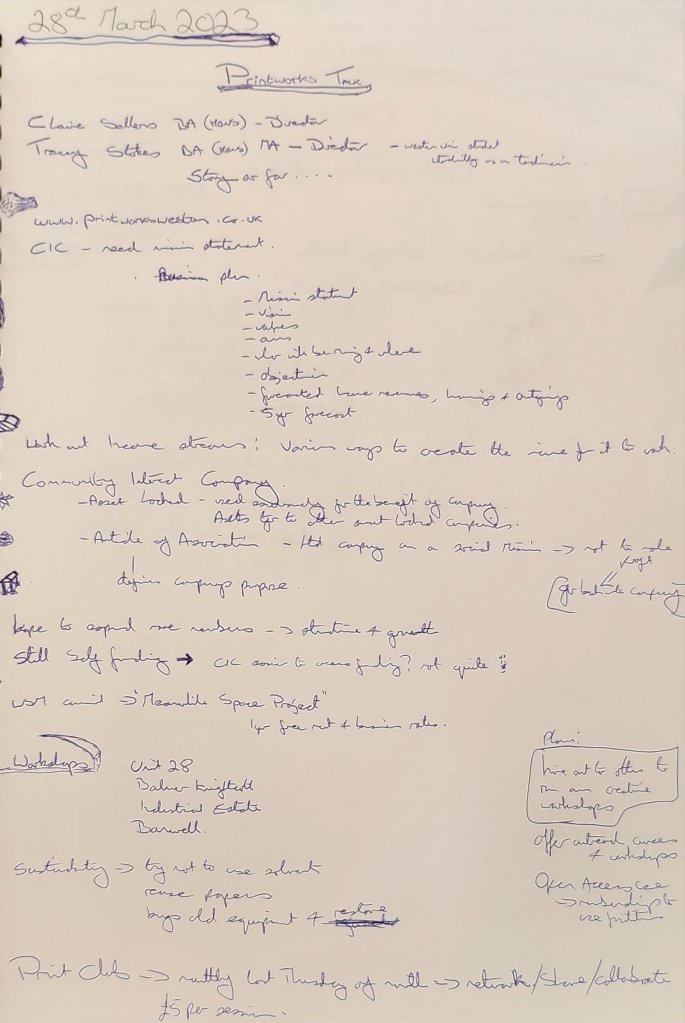 28th March 2023
Printworks Talk
Claire Sellers BA (Hons) - Director
Tracey Stokes BA (Hons) MA - Director -
Story so far ....
www.printworksweston.co.uk
CIC - need mission statement.
Business plan.
- Mission statement
- Vision
- values
- aims
- objectives
- forecasted income revenues, & outgoings
- 5yr forecast
Work out Income streams: Various ways to create the for it to work.
Community Interest Company.
- Asset Locked - used for the benefit of company.
Assets to other asset locked companies.
- Article of Association - ltd company on a social Mission -> not to make
profit
defines companys purpose.
[go back into company]
hope to expand more members -> structure & growth
Still Self funding -> CIC easier to access funding? not quite
WSM council -> "Meanwhile Space Project"
1yr free rent & business rates.
Workshops
Unit 28
Industrial Estate
Banwell.
Plans:
hire out to others to
run own creative
workshops
Offer outreach courses
& workshops
Open Access use
-> membership to
use
Sustainability -> try not to use solvents
reuse papers
buys old equipment & restore
Print Club -> monthly last Thursday of month -> network/share/collaborate
£5 per session.